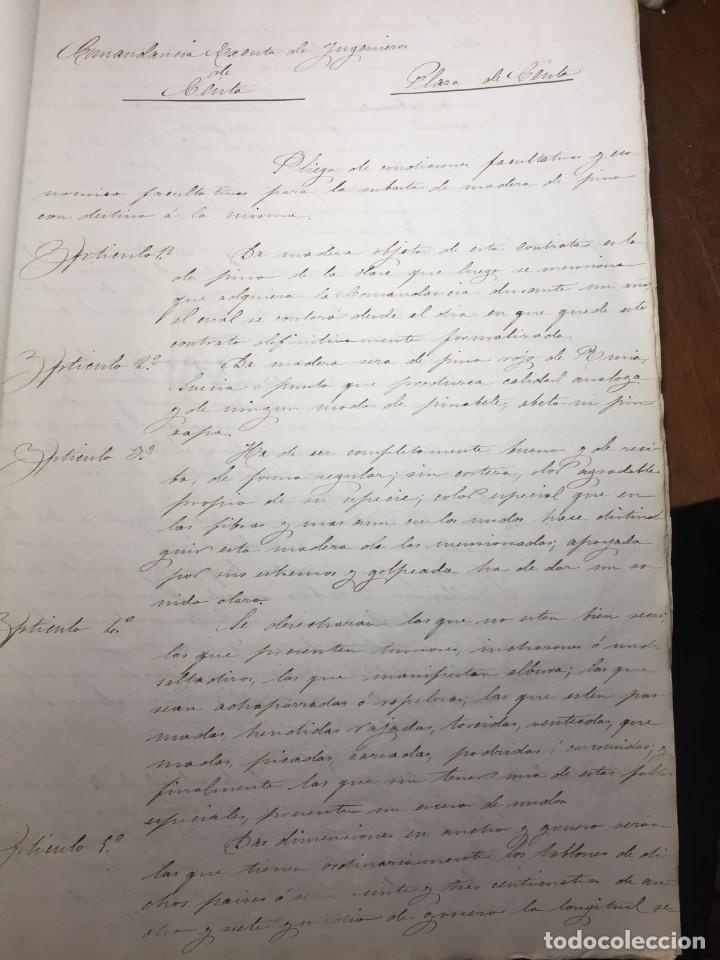 Comandancia Exenta de Ingenieros
de
Céuta
Plaza de Céuta
Pliego de condiciones facultativas y eco-
nomico facultativas para la subasta de madera de pino
con destino á la misma.
Artículo 1º La madera objeto de este contrato es la
de pino de la clase que luego se menciona
que adquiera la Comandancia durante un año
el cual se contará desde el dia en que quede este
contrato definitivamente formalizado.
Artículo 2º La madera será de pino rojo de Rusia,
Suecia ó punto que produzca calidad analoga
y de ningun modo de pinabete, abeto ni pin-
sapo.
Artículo 3º Ha de ser completamente bueno y de reci-
bo, de forma regular; sin corteza, olor agradable
propio de su especie; color especial que en
las fibras y mas aun en los nudos hace distin-
guir esta madera de las mencionadas; apoyada
por sus estremos y golpeada ha de dar un so-
nido claro.
Artículo 4º Se desecharán las que no esten bien secas
las que presenten tumores, inchazones ó nudos
saltadizos, las que manifiestan albura; las que
sean achaparradas ó repelosas; las que esten pas-
madas, hendidas rajadas, torcidas, venteadas, que-
madas, picadas, careadas, podridas ó carcomidas; y
finalmente las que sin tener una de estas faltas
especiales, presenten un exceso de nudos
Artículo 5º Las dimensiones en ancho y grueso serán
las que tienen ordinariamente los tablones de di-
chos paises ó sean veinte y tres centimetros de an-
cho y siete y medio de grueso la longitud se
todocoleccion.net